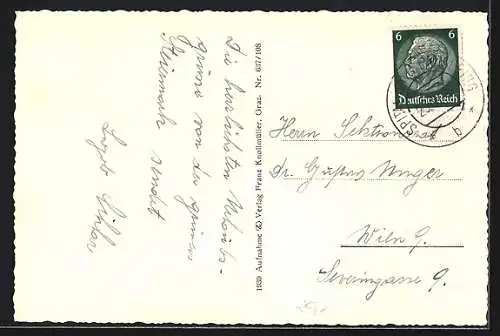 Die herzlichsten Urlaubs-
grüsse von der grünen
Steiermark sendet
1939 Aufnahme Verlag Franz Knollmüller, Graz. Nr. 637/108
6 6
Deutsches Reich
Herrn Sektionsrat
Dr. Gustav Unger
Wien 9.
Severingasse 9.